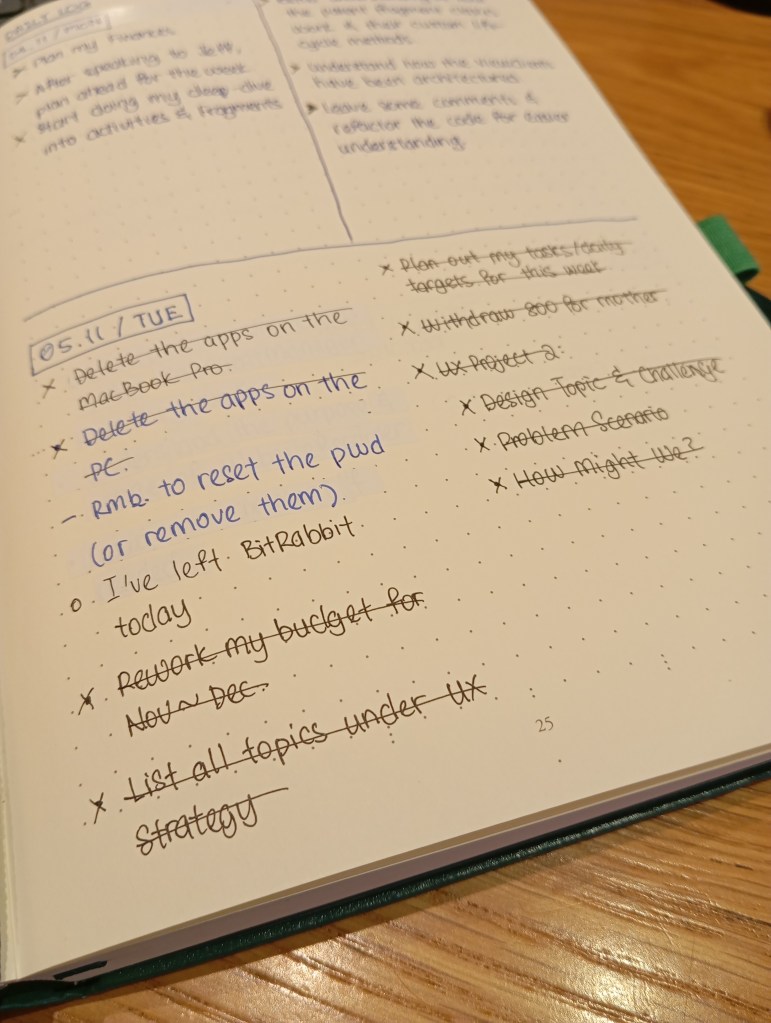 DAILY LOG
04.11 / MON
> Plan my finances
> After speaking to Jeff,
plan ahead for the week
x Start doing my deep-dive
into activities & fragments
& their custom life-
cycle methods
> understand how the
have been architectured
> Leave some comments &
refactor the code for easier
understanding
05.11 / TUE
x Delete the apps on the
MacBook Pro.
x Delete the apps on the
PC.
- Rmb. to reset the pwd
(or remove them).
o I've left BitRabbit
today
x Rework my budget for
Nov ~ Dec.
x List all topics under UX
strategy
x Plan out my tasks/daily
targets for this week
x Withdraw 800 for mother
x UX Project 2:
x Design Topic & Challenge
x Problem Scenario
x How Might We?
25